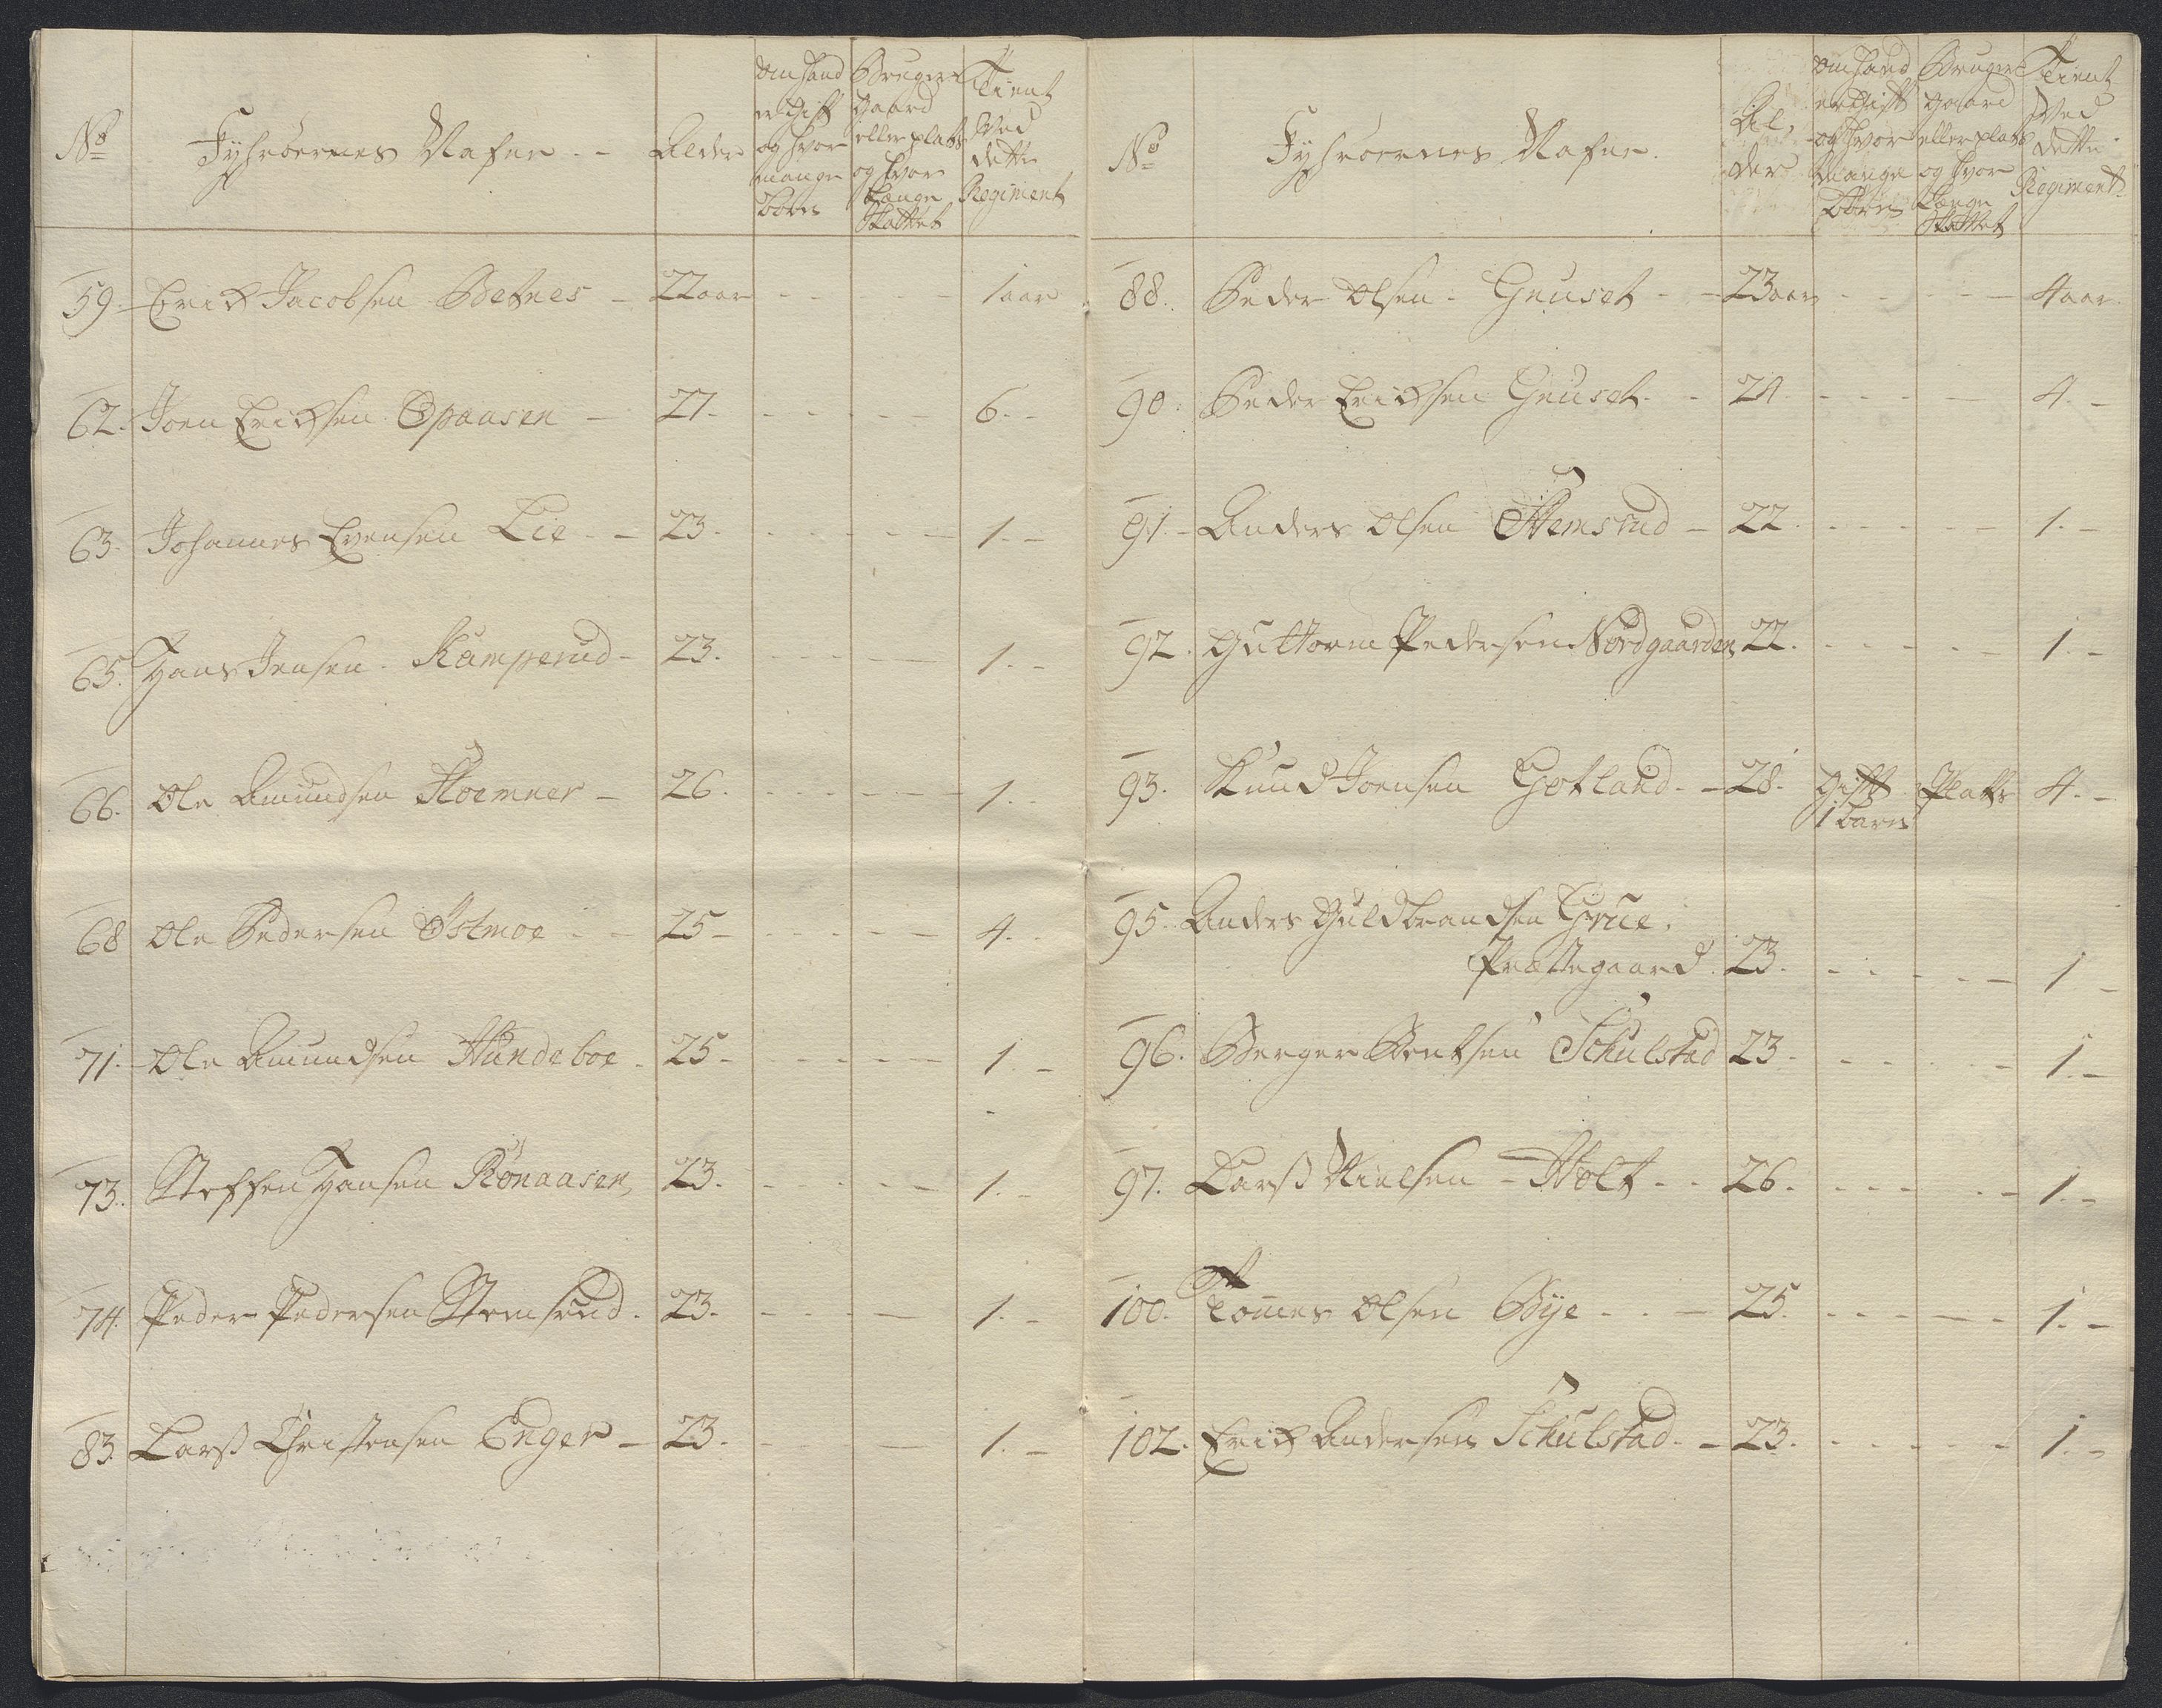 No
Fyhrernes Nafne
Alder
om hand er Gift og hvor mange børn
Bruger Gaard eller plats og hvor Længe Skattet
Tient Ved dette Regiment
59. Erich Jacobsen Betnes - 22 aar - - - 1 aar
62. Joen Erichsen Opaasen - 27. - - - 6. -
63. Johannes Evensen Lie - - 23. - - - 1. -
65. Hans Jensen Kamperud - 23. - - - 1. -
66. Ole Amundsen Hoemner - 26. - - - 1. -
68 Ole Pedersen Istmoe - - 25 - - - 4. -
71. Ole Amundsen Hundeboe - 25 - - - 1. -
73. Steffen Hansen Rönaasen, 23. - - - 1. -
74. Peder Pedersen Stemsrud. 23. - - - 1. -
83. Larß Christensen Enger - 23. - - - 1. -
No
Fyhrernes Nafne.
Al,
der
om hand er Gift og hvor Mange Børn
Bruger Gaard eller plats og hvor Længe Skattet
Tient Ved dette Regiment
88. Peder Olsen Gruset - - 23 aar - - - 4 aar
90. Peder Erichsen Gruset - - 24 - - - 4. -
91. - Anders Olsen Hemsrud - 22. - - - 1. -
92. Guttorm Pedersen Nordgaarden 22. - - - 1. -
93. Knud Joensen Gotland - - 28. Gift Plats 4. -
1 barn
95. Anders Guldbrandsen Grue.
Præstegaard. 23. - - - 1 -
96. Berger Bentsen Schulstad 23 - - - 1. -
97. Larß Nielsen - Holt - - 26. - - - 1. -
100. Tomes Olsen Bye - - - 25. - - - 1. -
102. Erich Andersen Schulstad. - 23. - - - 1. -